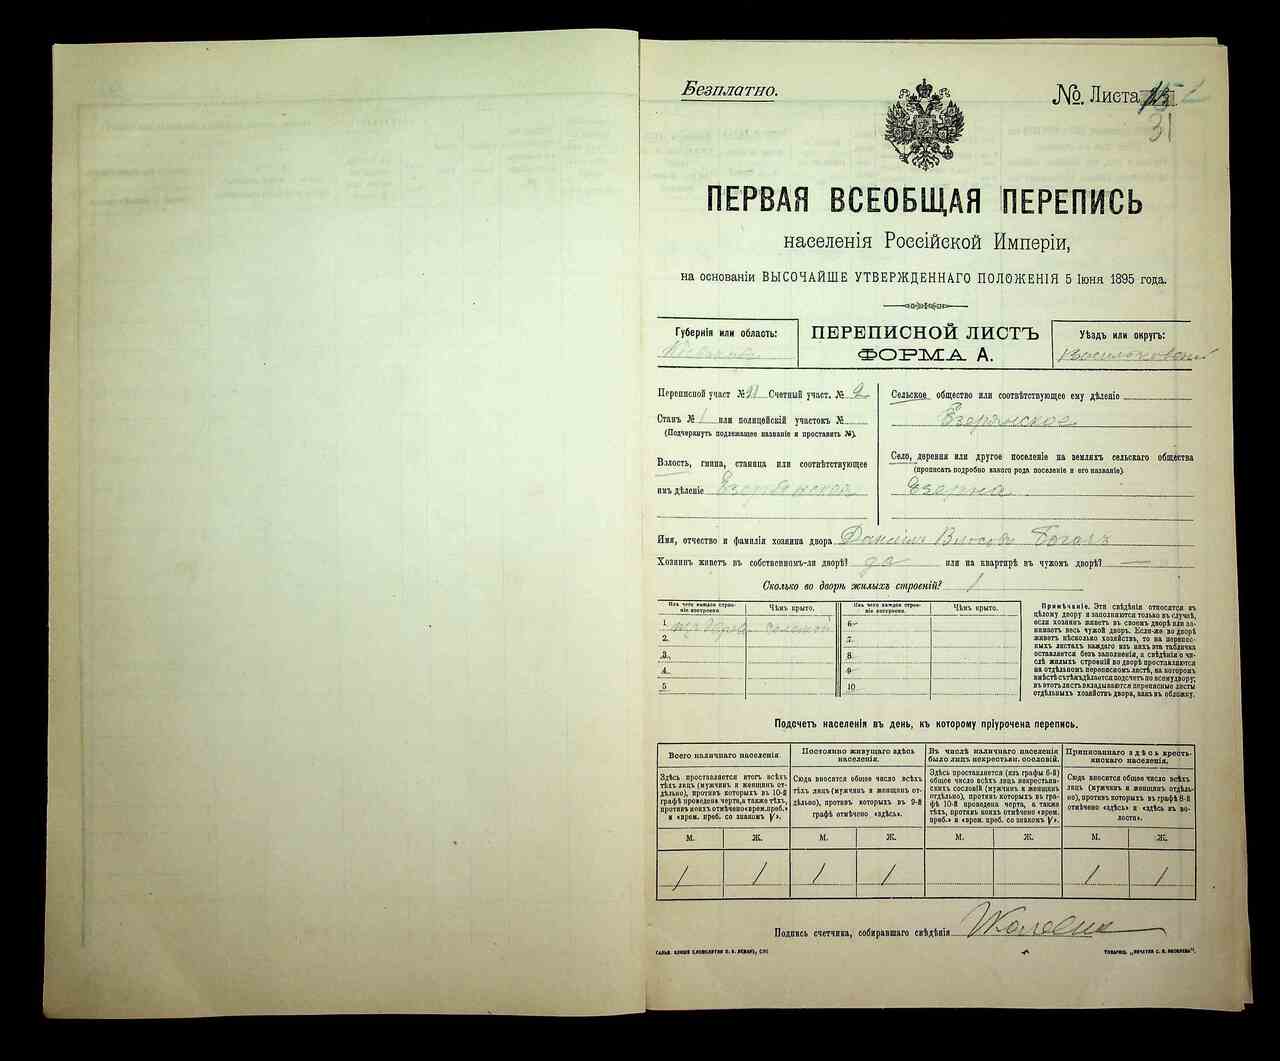 Безплатно.
№. Листа
31
ПЕРВАЯ ВСЕОБЩАЯ ПЕРЕПИСЬ
населенія Россійской Имперіи,
на основаніи ВЫСОЧАЙШЕ УТВЕРЖДЕННАГО ПОЛОЖЕНІЯ 5 Іюня 1895 года.
Губернія или область:
ПЕРЕПИСНОЙ ЛИСТЪ
ФОРМА А.
Уѣздъ или округъ:
Васильковскій
Переписной участ № 11 Счетный участ. № 2
Станъ № 1 или полицейскій участокъ №
(Подчеркнуть подлежащее названіе и проставить №).
Волость, гмина, станица или соотвѣтствующее
имъ дѣленіе Езерянская
Сельское общество или соотвѣтствующее ему дѣленіе
Езерянское
Село, деревня или другое поселеніе на земляхъ сельскаго общества
(прописать подробно какого рода поселеніе и его названіе).
Езерна.
Имя, отчество и фамилія хозяина двора Даніилъ Власовъ
Хозяинъ живетъ въ собственномъ-ли дворѣ? да или на квартирѣ въ чужомъ дворѣ? —
Сколько во дворѣ жилыхъ строеній? 1
Изъ чего каждое строеніе построено.
Чѣмъ крыто.
Изъ чего каждое строеніе построено.
Чѣмъ крыто.
1 соломой
2.
3.
4.
5
6
7.
8.
9
10
Примѣчаніе. Эти свѣдѣнія относятся къ
цѣлому двору и заполняются только въ случаѣ,
если хозяинъ живетъ въ своемъ дворѣ или занимаетъ
весь чужой дворъ. Если-же во дворѣ
живетъ нѣсколько хозяйствъ, то на переписныхъ
листахъ каждаго изъ нихъ эта табличка
оставляется безъ заполненія, а свѣдѣнія о числѣ
жилыхъ строеній во дворѣ проставляются
на отдѣльномъ переписномъ листѣ, на которомъ
вмѣстѣ съ тѣмъ дѣлается подсчетъ по всему двору;
въ этотъ листъ вкладываются переписные листы
отдѣльныхъ хозяйствъ двора, какъ въ обложку.
Подсчетъ населенія въ день, къ которому пріурочена перепись.
Всего наличнаго населенія
Здѣсь проставляется итогъ всѣхъ
тѣхъ лицъ (мужчинъ и женщинъ отдѣльно),
противъ которыхъ въ 10-й
графѣ проведена черта, а также тѣхъ,
противъ коихъ отмѣчено «врем. преб.»
и «врем. преб. со знакомъ V».
Постоянно живущаго здѣсь
населенія.
Сюда вносится общее число всѣхъ
тѣхъ лицъ (мужчинъ и женщинъ отдѣльно),
противъ которыхъ въ 9-й
графѣ отмѣчено «здѣсь».
Въ числѣ наличнаго населенія
было лицъ некрестьян. сословій.
Здѣсь проставляется (изъ графы 6-й)
общее число всѣхъ лицъ некрестьянскихъ
сословій (мужчинъ и женщинъ
отдѣльно), противъ которыхъ въ графѣ
10-й проведена черта, а также
тѣхъ, противъ коихъ отмѣчено «врем.
преб.» и «врем. преб. со знакомъ V».
Приписаннаго здѣсь крестьянскаго
населенія.
Сюда вносится общее число всѣхъ
лицъ (мужчинъ и женщинъ отдѣльно),
противъ которыхъ въ графѣ 8-й
отмѣчено «здѣсь» и «здѣсь въ волости».
М. Ж. М. Ж. М. Ж. М. Ж.
1 1 1 1 1 1
Подпись счетчика, собиравшаго свѣдѣнія